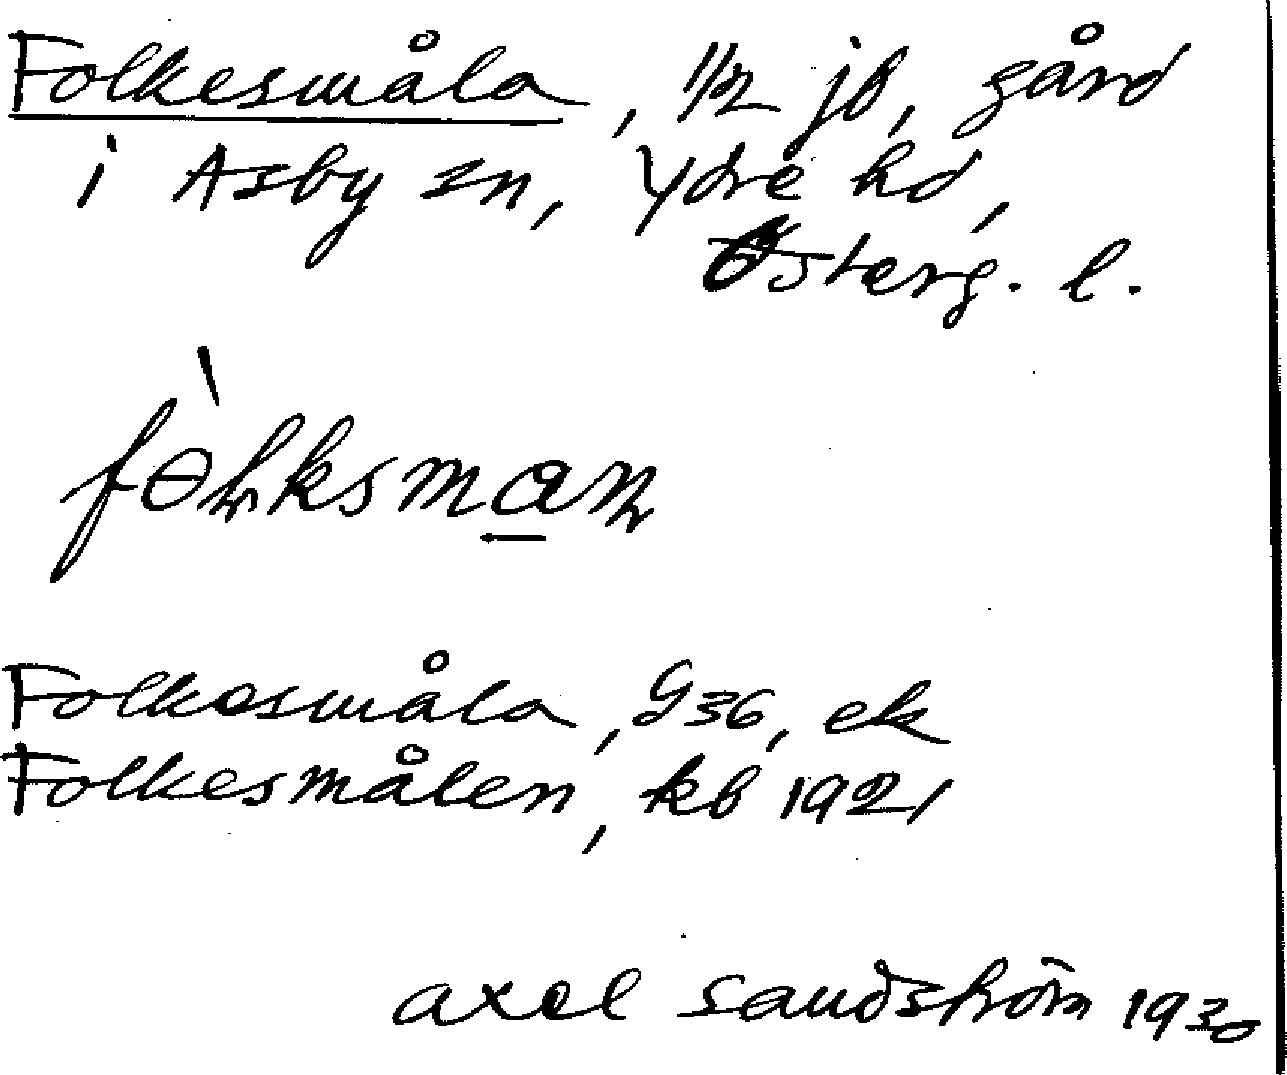 Folkesmåla, 1/2 jb, gård
i Asby sn, Ydre hd,
Österg. l.
Folkesmåla, G36, ek
Folkesmålen, kb 1921
axel sandström 1930